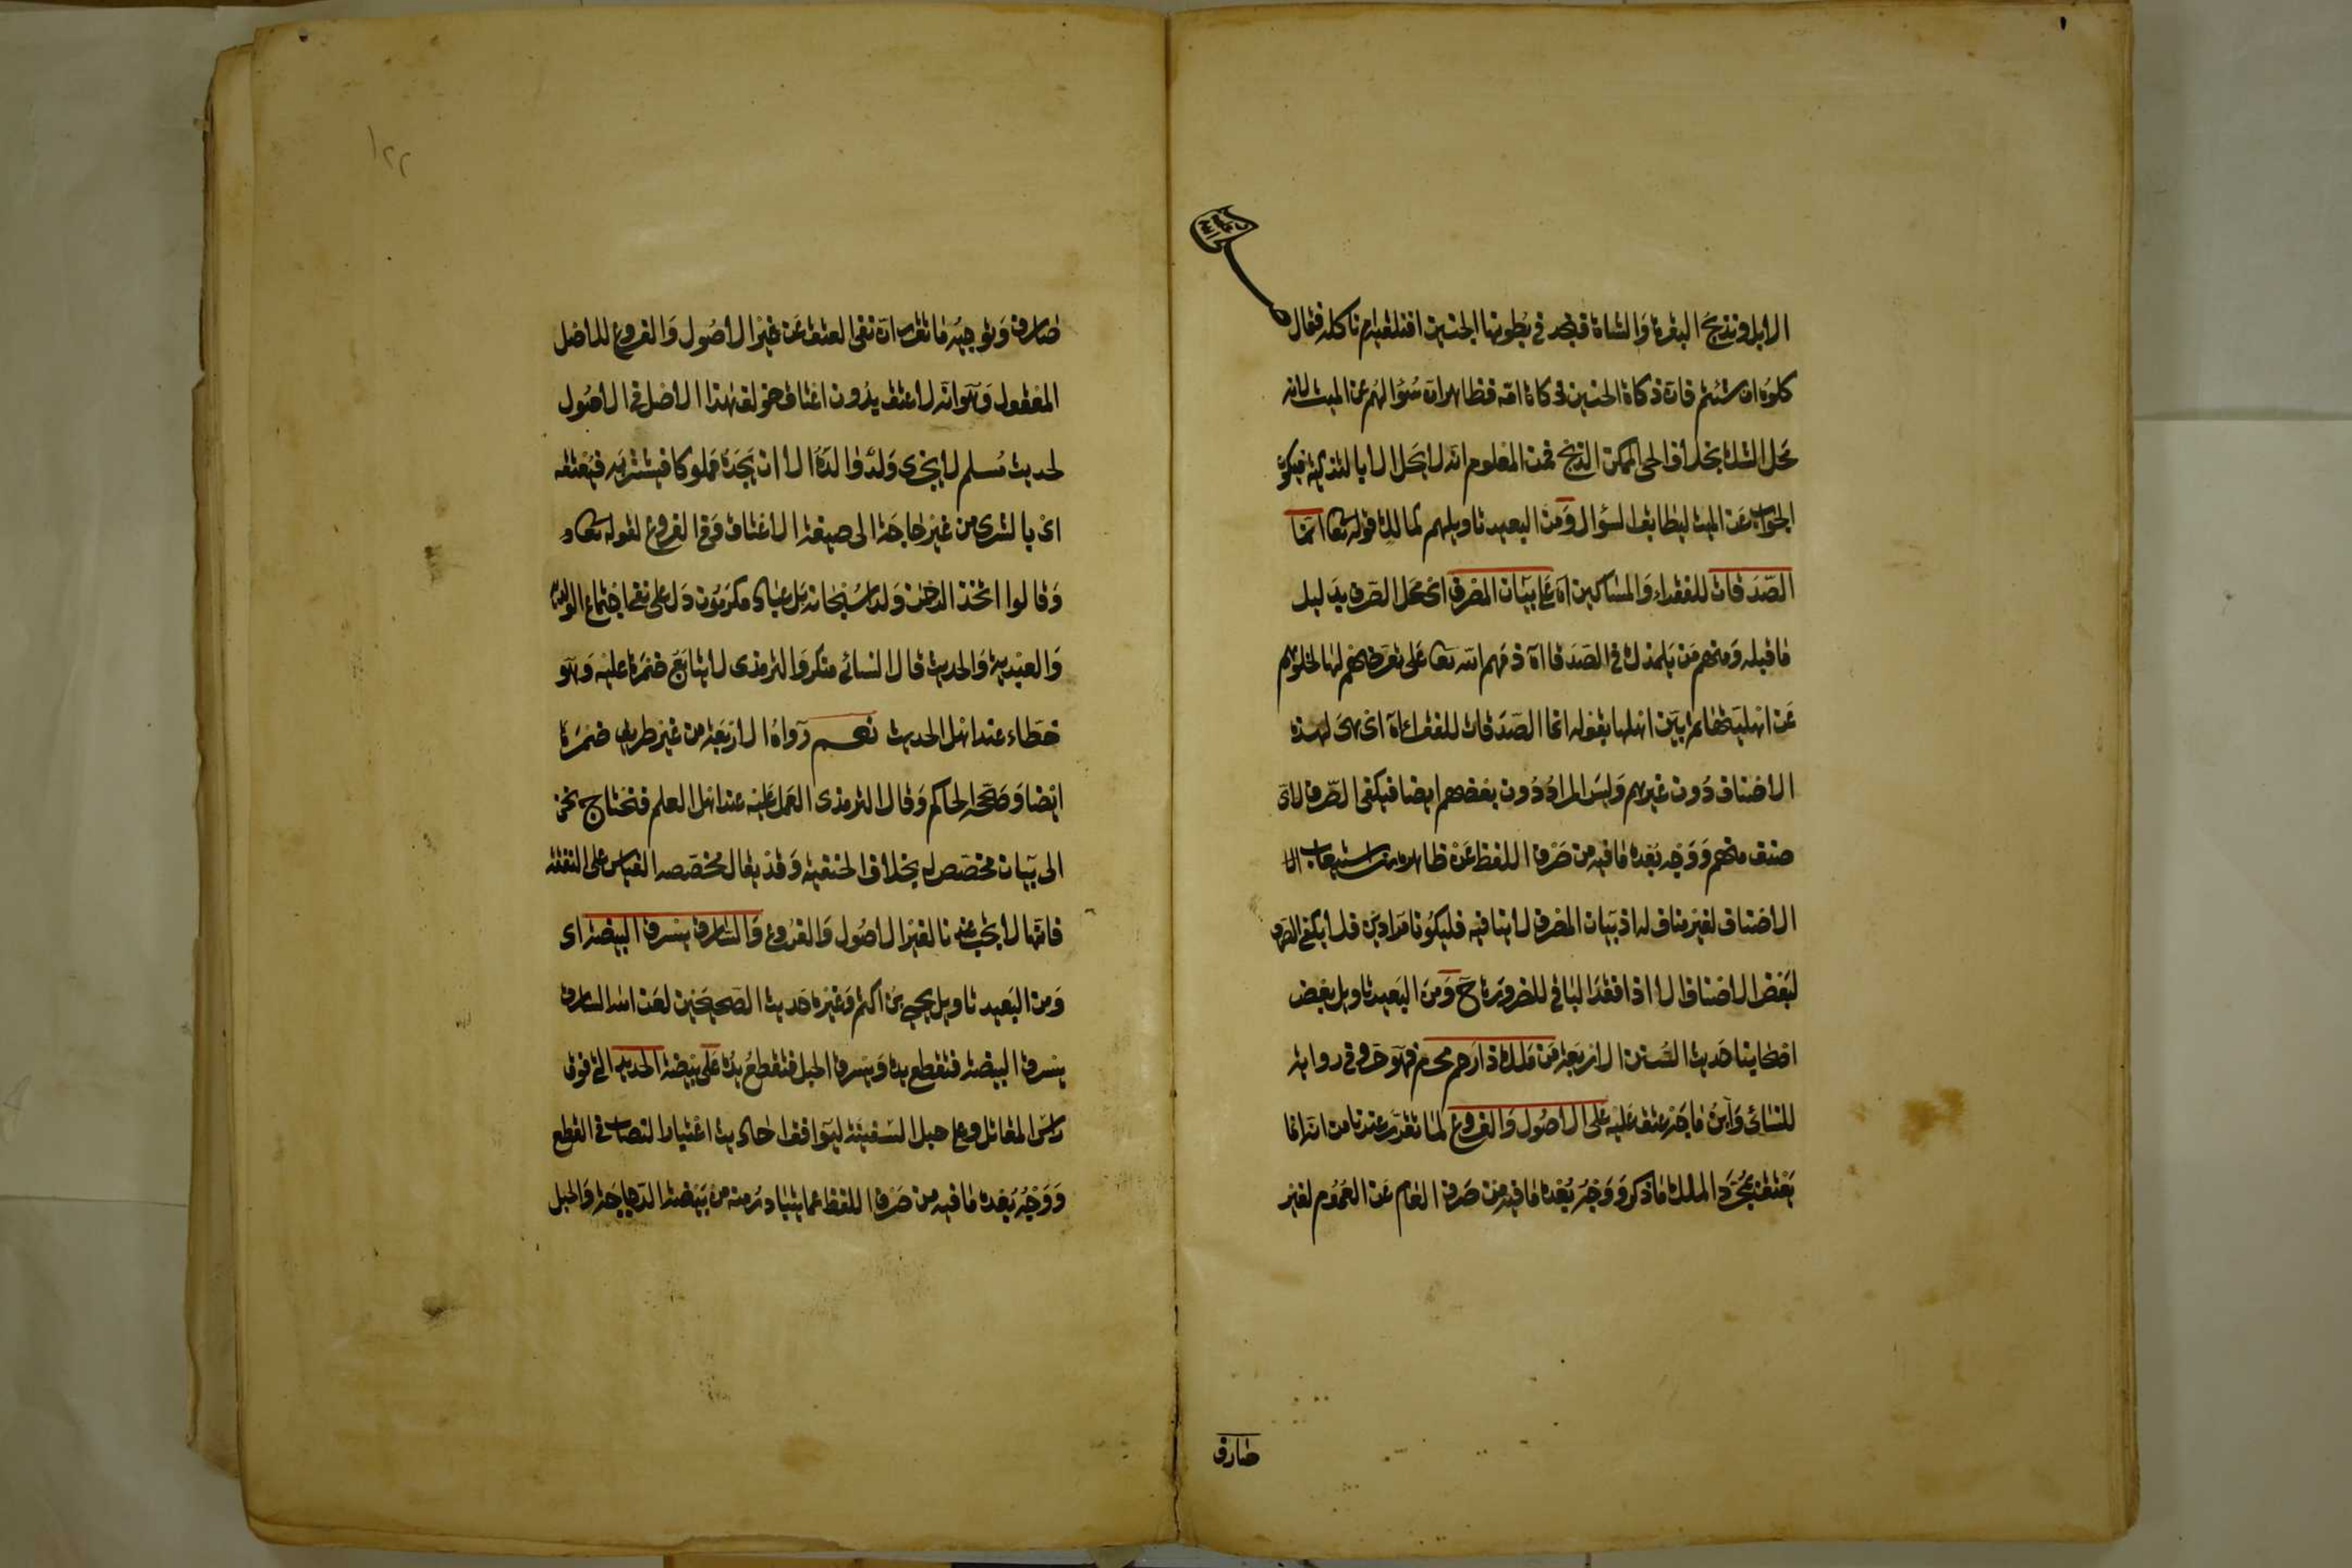 الابل ونذبح البقرة والشاة فنجد في بطونها الجنين افنلقيه ام ناكله فقال
صلى الله عليه
كلوه ان شئتم فان ذكاة الجنين ذكاة امه فظاهر ان سؤالهم عن الميت لانه
محل الشك بخلاف الحي الممكن الذبح فمن المعلوم انه لا يحل الا بالتذكية فيكون
الجواب عن الميت ليطابق السؤال ومن البعيد تاويلهم كمالك قوله تعا انما
الصدقات للفقراء والمساكين اه على بيان المصرف اى محل الصرف بدليل
ما قبله ومنهم من يلمزك في الصدقات اه ذمهم الله تعا على تعرضهم لها لخلوهم
عن اهليتها ثم بين اهلها بقوله انما الصدقات للفقراء اه اى هى لهذه
الاصناف دون غيرهم وليس المراد دون بعضهم ايضا فيكفى الصرف لاى
صنف منهم ووجه بعده ما فيه من صرف اللفظ عن ظاهره من استيعاب الا
الاصناف لغير مناف له اذ بيان المصرف لا ينافيه فليكونا مرادين فلا يكفى الصرف
لبعض الاصناف الا اذا فقد الباقي للضرورة ح ومن البعيد تاويل بعض
اصحابنا حديث السنن الاربعة من ملك ذا رحم محرم فهو حر وفي رواية
للنسائى وابن ماجه عتق عليه على الاصول والفروع لما تقرر عندنا من انه انما
يعتق بمجرد الملك ما ذكر ووجه بعده ما فيه من صرف العام عن العموم لغير
صارف
١٢٢
صارف وتوجيهه ما تقرر ان نفى العتق عن غير الاصول والفروع للاصل
المعقول وهو انه لا عتق بدون اعتاق خولف هذا الاصل في الاصول
لحديث مسلم لا يجزى ولد والده الا ان يجده مملوكا فيشتريه فيعتقه
اى بالشرى من غير حاجة الى صيغة الاعتاق وفى الفروع لقوله تعا
وقالوا اتخذ الرحمن ولدا سبحانه بل عباد مكرمون دل على نفى اجتماع الولدية
والعبدية والحديث قال النسائى منكر والترمذى لا يتابع ضمرة عليه وهو
خطاء عند اهل الحديث نعم رواه الاربعة من غير طريق ضمرة
ايضا وصححه الحاكم وقال الترمذى العمل عليه عند اهل العلم فنحتاج نحن
الى بيان مخصص له بخلاف الحنفية وقد يقال مخصصه القياس على النفقة
فانها لا تجب عندنا لغير الاصول والفروع والسارق يسرق البيضة اى
ومن البعيد تاويل يحيى بن اكثم وغيره حديث الصحيحين لعن الله السارق
يسرق البيضة فتقطع يده ويسرق الحبل فتقطع يده على بيضة الحديد التى فوق
راس المقاتل وعلى حبل السفينة ليوافق احاديث اعتبار النصاب في القطع
ووجه بعده ما فيه من صرف اللفظ عما يتبادر منه من بيضة الدجاجة والحبل